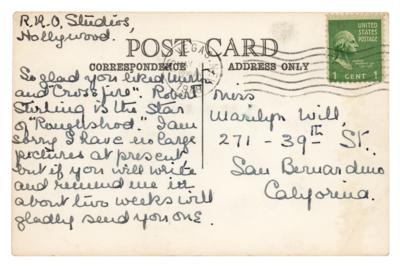 R.K.O. Studios,
Hollywood.
POST CARD
CORRESPONDENCE
ADDRESS ONLY
UNITED STATES
POSTAGE
1 CENT 1
So glad you liked
and "Crossfire". Robert
Sterling is the Star
of "Roughshod". I am
sorry I have no large
pictures at present
but if you will write
and remind me in
about two weeks will
gladly send you one.
Miss
Marilyn Will,
271 - 39th St.
San Bernardino
California.